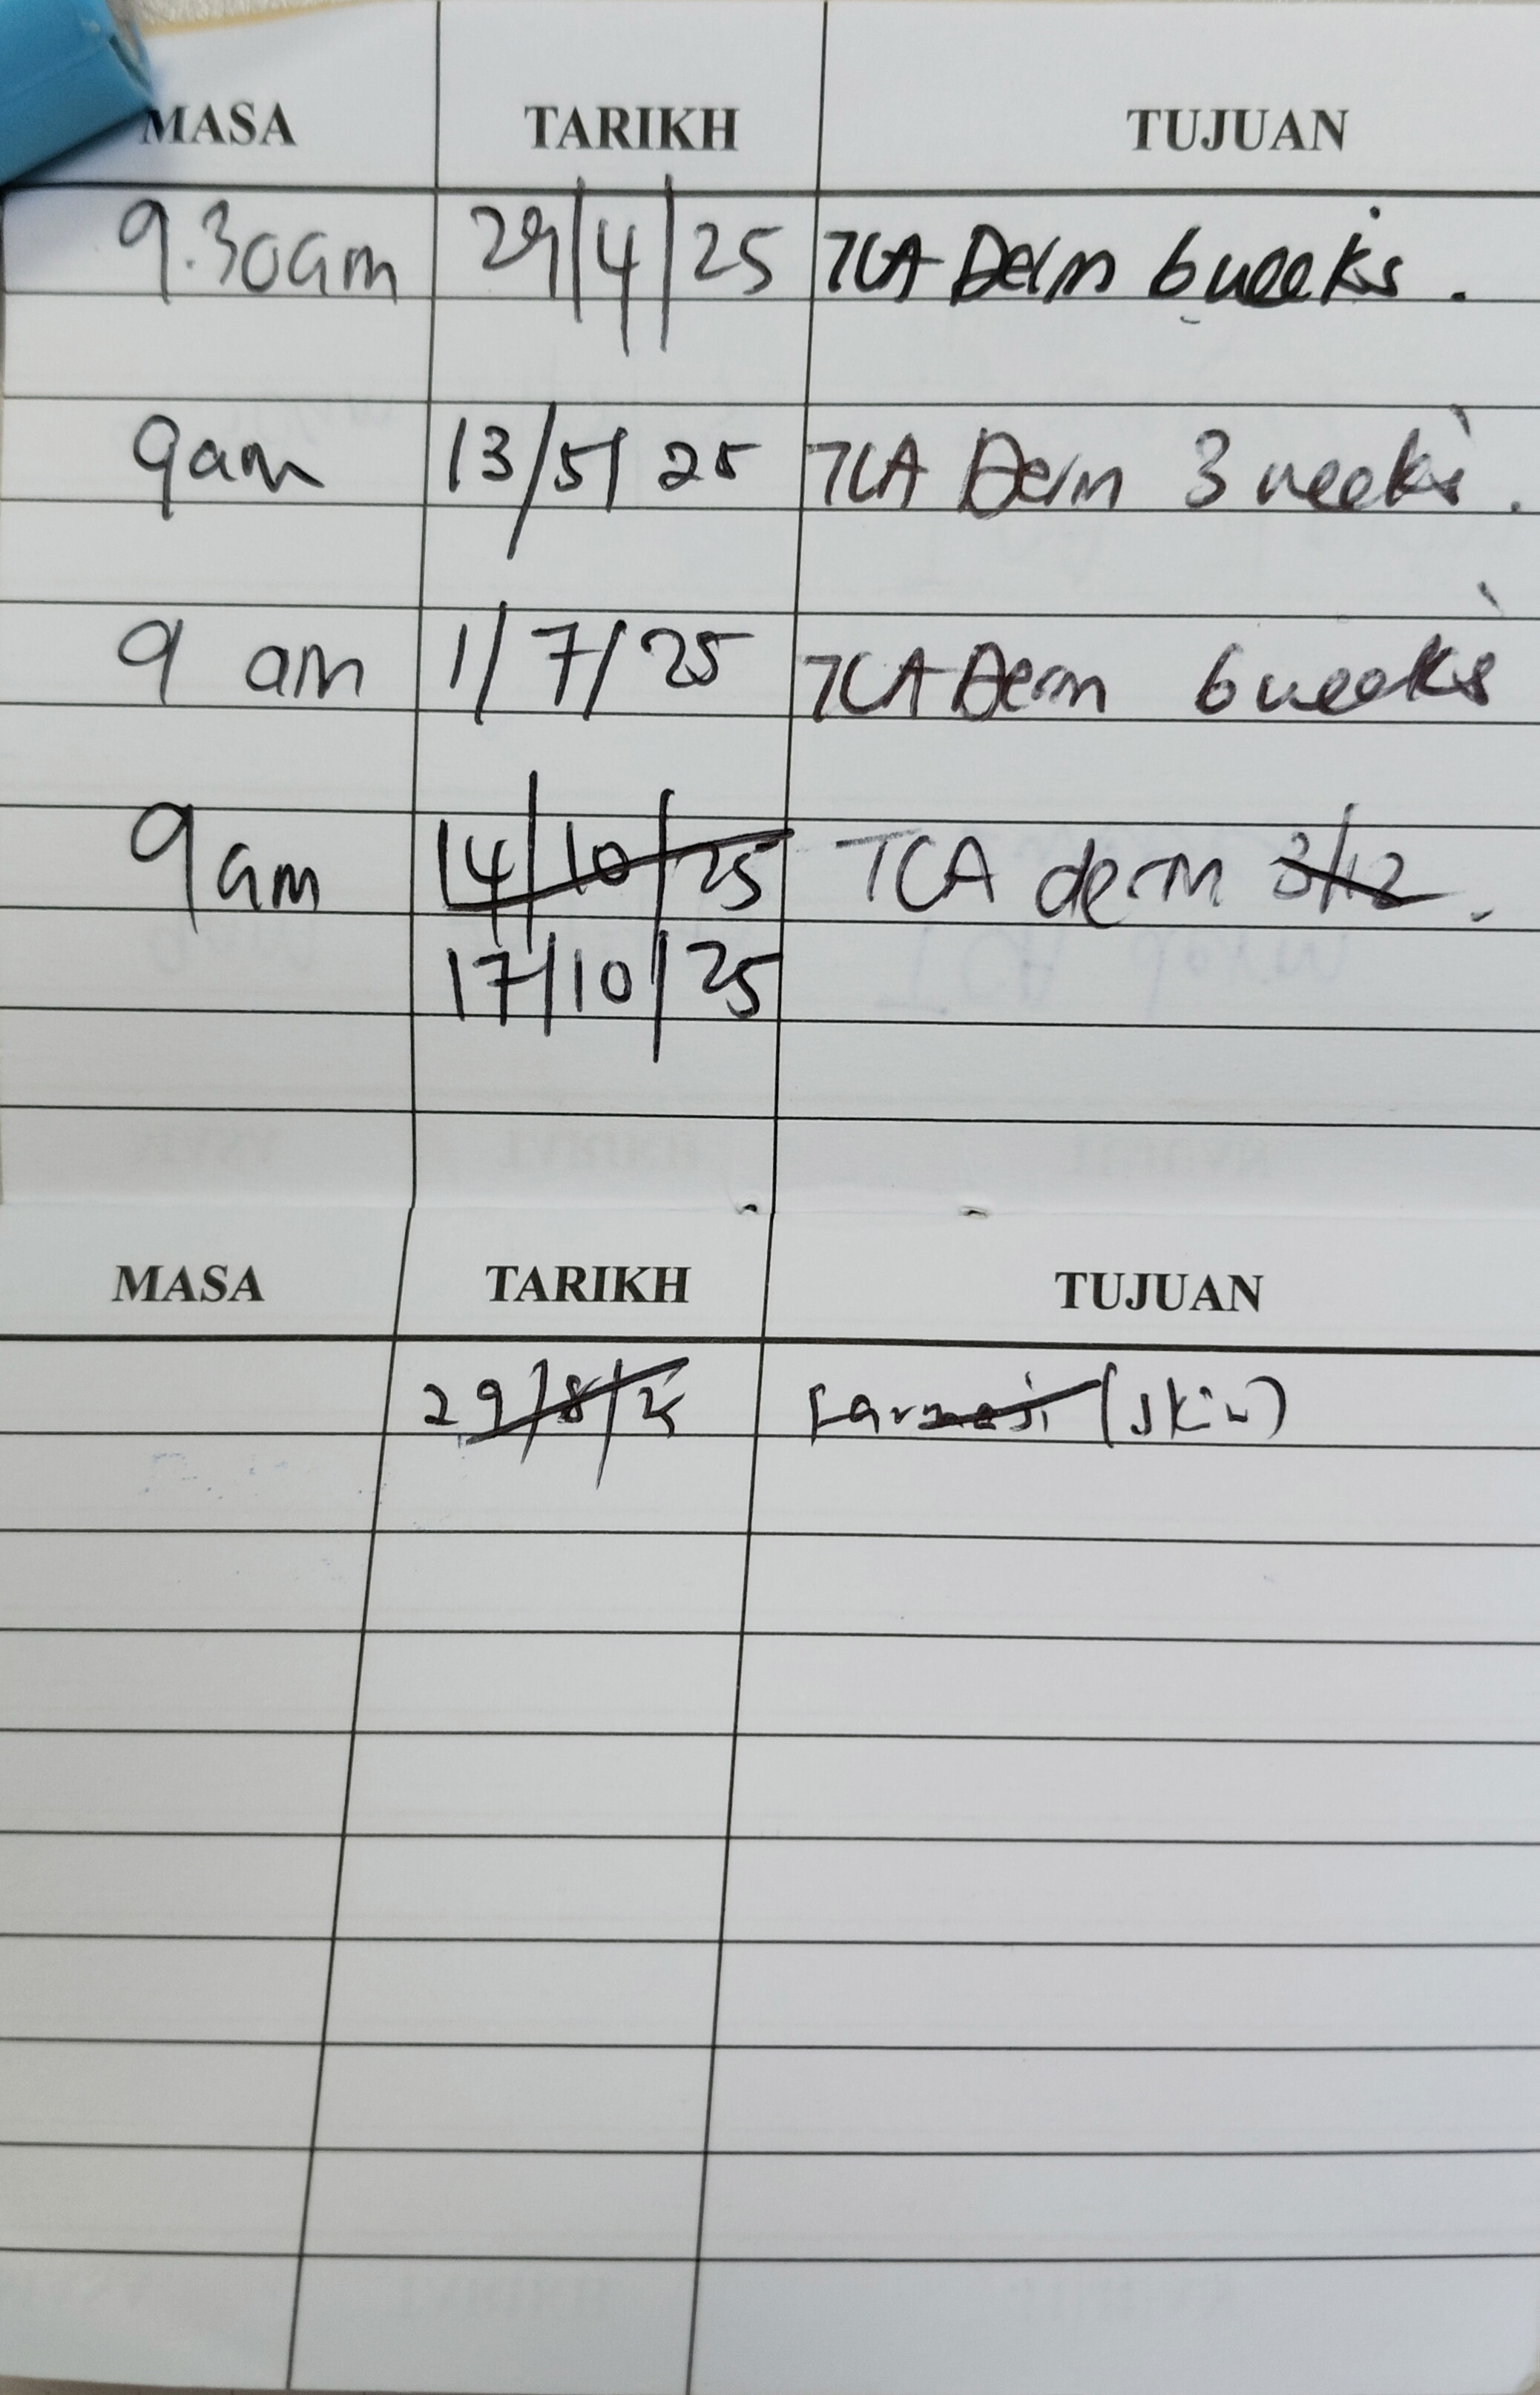 MASA TARIKH TUJUAN
9.30am 29/4/25 TCA Derm 6 weeks.
9am 13/5/25 TCA Derm 3 weeks.
9 am 1/7/25 TCA Derm 6 weeks
9am 14/10/25 TCA derm 3/12.
17/10/25
MASA TARIKH TUJUAN
29/8/25 Farmasi (skin)